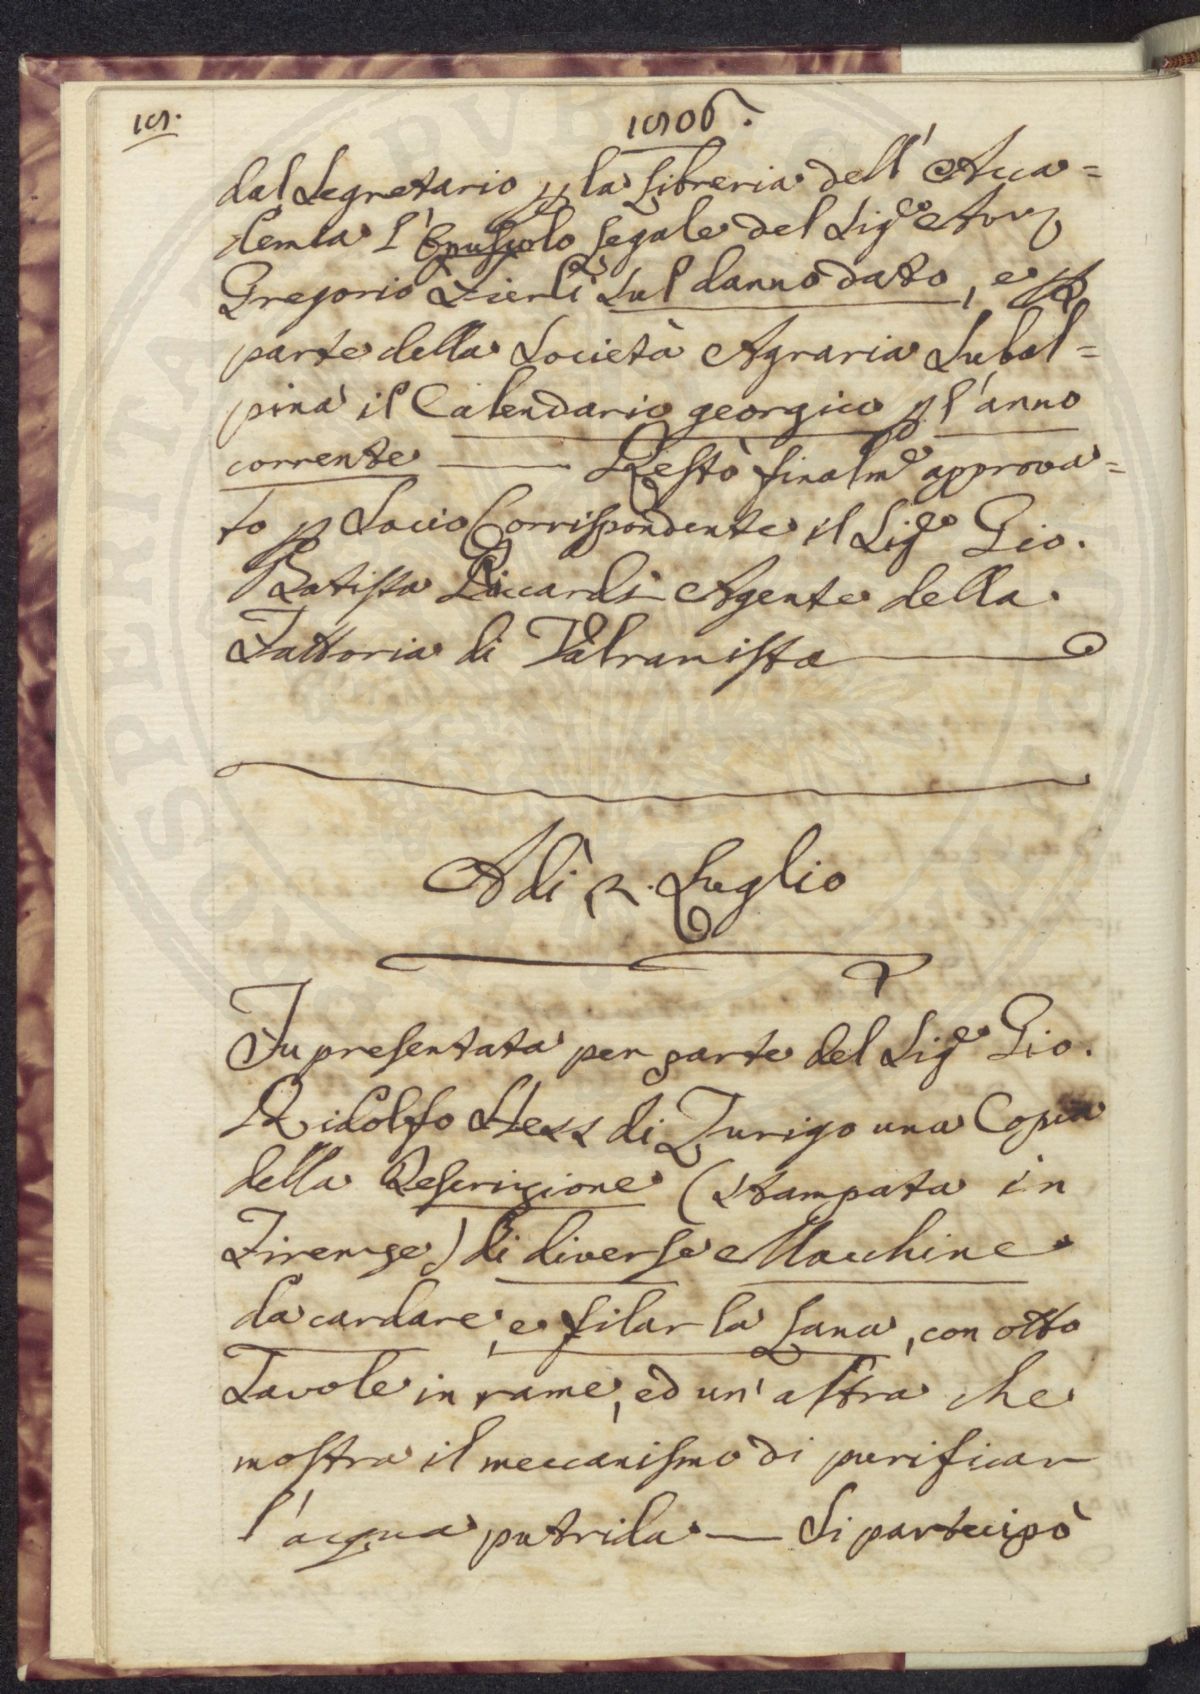 1806.
dal Segretario p la Libreria dell' Acca=
demia l' Opuscolo Legale del Sig.e Avv
Gregorio Fierli Sul danno dato, e p
parte della Società Agraria Subal=
pina il Calendario georgico p l'anno
corrente — Restò finalm.e approva=
to p Socio Corrispondente il Sig.e Gio.
Batista Riccardi Agente della
Fattoria di Valramista
Adì 2. Luglio
Fu presentata per parte del Sig.e Gio.
Ridolfo Hess di Zurigo una Copia
della Descrizione (stampata in
Firenze) di diverse Macchine
da cardare, e filar la Lana, con otto
Tavole in rame, ed un' altra che
mostra il meccanismo di purificar
l'acqua putrida — Si partecipò